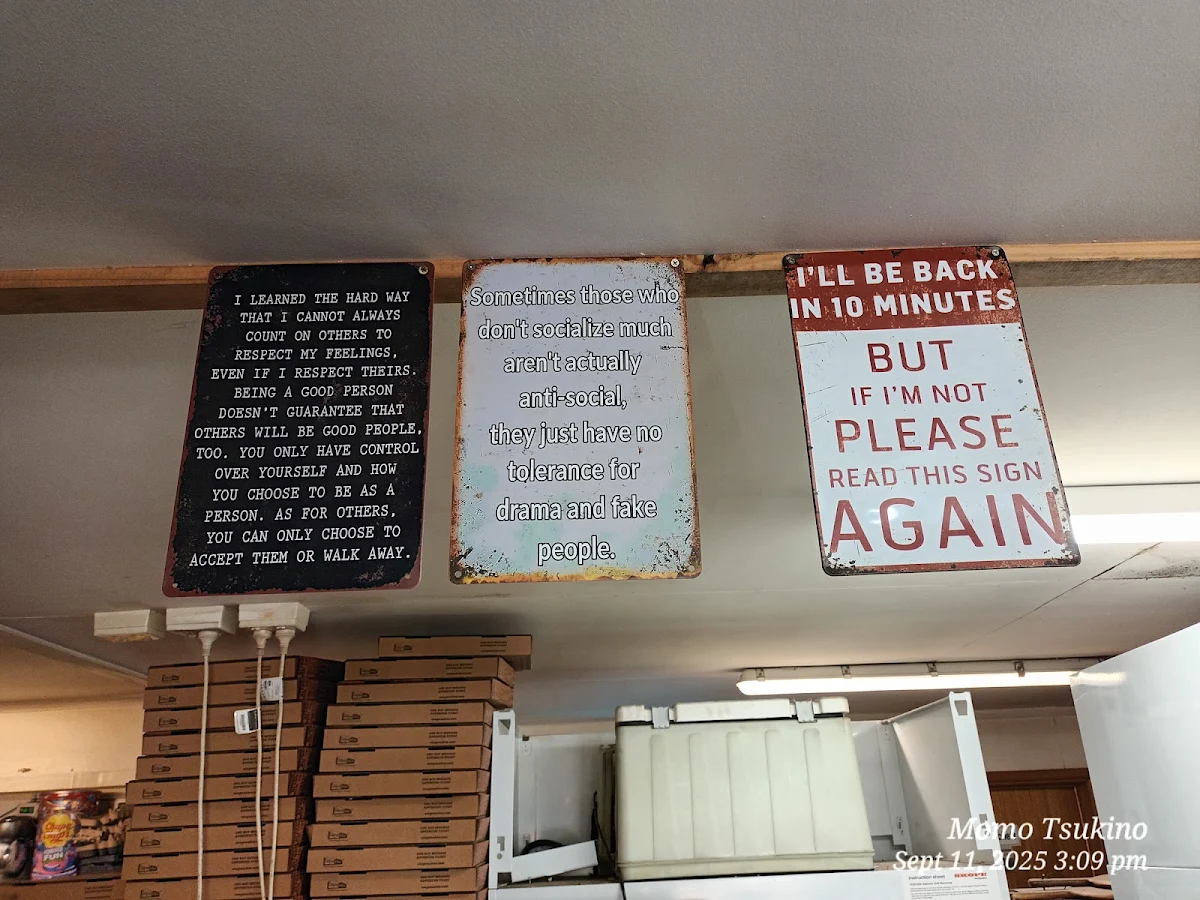 I LEARNED THE HARD WAY
THAT I CANNOT ALWAYS
COUNT ON OTHERS TO
RESPECT MY FEELINGS,
EVEN IF I RESPECT THEIRS.
BEING A GOOD PERSON
DOESN'T GUARANTEE THAT
OTHERS WILL BE GOOD PEOPLE,
TOO. YOU ONLY HAVE CONTROL
OVER YOURSELF AND HOW
YOU CHOOSE TO BE AS A
PERSON. AS FOR OTHERS,
YOU CAN ONLY CHOOSE TO
ACCEPT THEM OR WALK AWAY.
Sometimes those who
don't socialize much
aren't actually
anti-social,
they just have no
tolerance for
drama and fake
people.
I'LL BE BACK
IN 10 MINUTES
BUT
IF I'M NOT
PLEASE
READ THIS SIGN
AGAIN
FUN
Instruction sheet
SKOPE
Momo Tsukino
Sept 11, 2025 3:09 pm